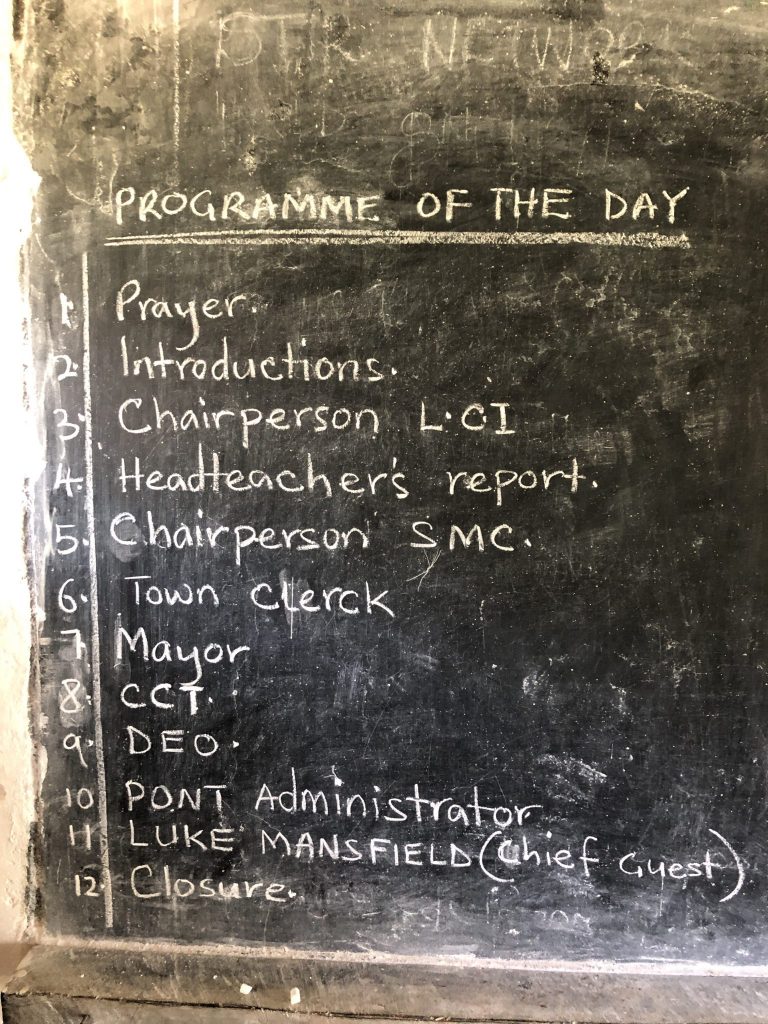 PROGRAMME OF THE DAY
1. Prayer.
2. Introductions.
3. Chairperson L.CI
4. Headteacher's report.
5. Chairperson SMC.
6. Town Clerck
7. Mayor
8. CCT.
9. DEO.
10 PONT Administrator
11 LUKE MANSFIELD (Chief Guest)
12. Closure.